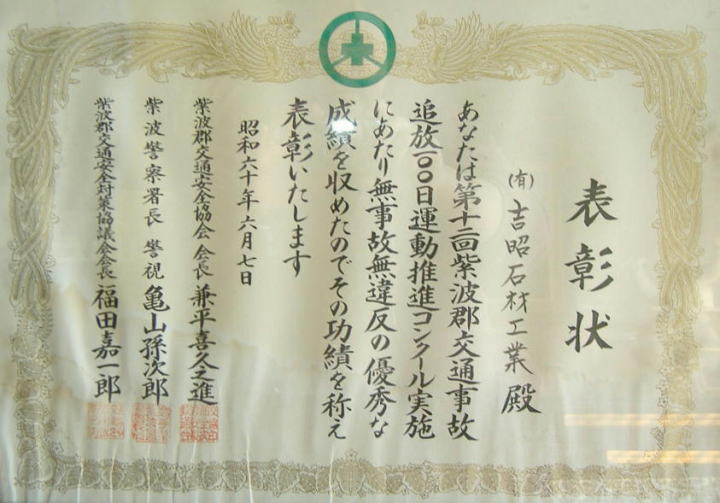 表彰状
(有)吉昭石材工業殿
あなたは第十二回紫波郡交通事故
追放一〇〇日運動推進コンクール実施
にあたり無事故無違反の優秀な
成績を収めたのでその功績を称え
表彰いたします
昭和六十年六月七日
紫波郡交通安全協会会長 兼平喜久之進
紫波警察署長 警視 亀山孫次郎
紫波郡交通安全対策協議会会長 福田嘉一郎